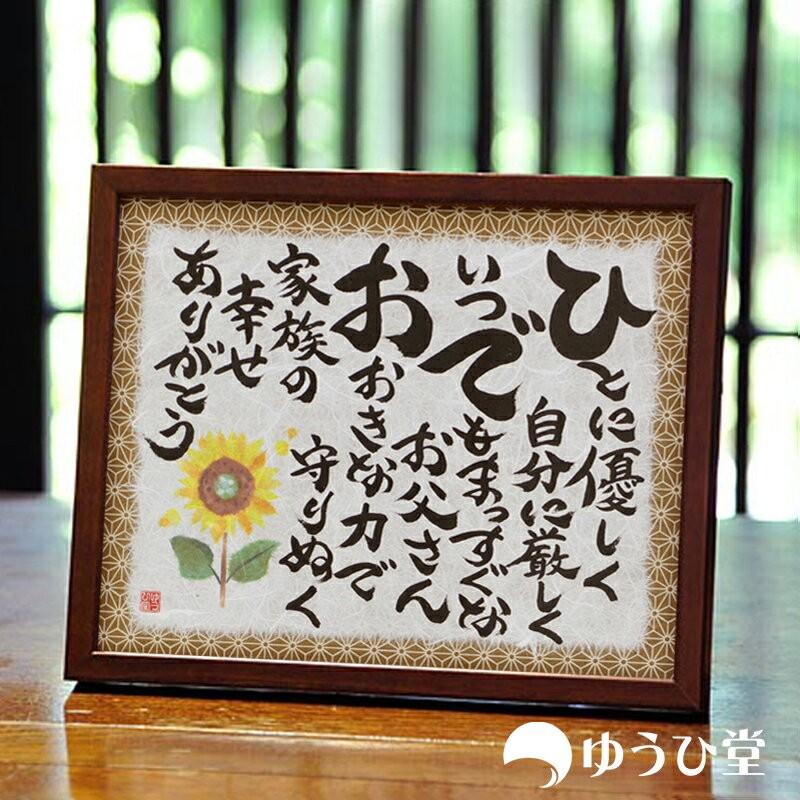 ひとに優しく
自分に厳しく
いつでもまっすぐな
お父さん
おおきな力で
守りぬく
家族の
幸せ
ありがとう
ゆうひ堂